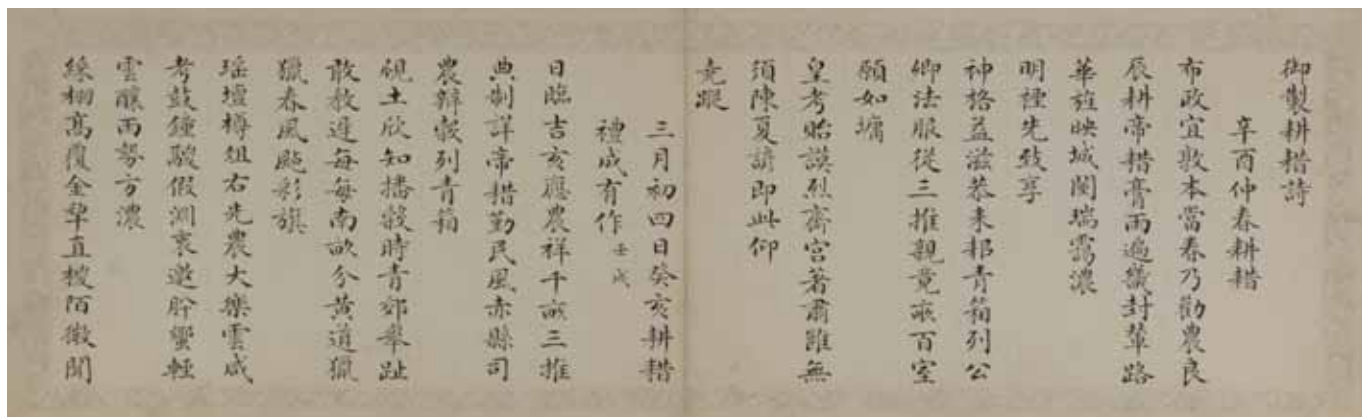 御製耕耤詩
辛酉仲春耕耤
布政宜敦本當春乃勸農良
辰耕帝耤膏雨遍畿封輦路
華旌映城闉瑞靄濃
明禋先致享
神格益滋恭耒耜青箱列公
卿法服從三推親竟畝百室
願如墉
皇考貽謨烈齋宮著肅雝無
須陳夏諺即此仰
堯蹤
三月初四日癸亥耕耤
禮成有作 壬戌
日臨吉亥應農祥千畝三推
典制詳帝耤勤民風赤縣司
農辦穀列青箱
硯土欣知播穀時青郊舉趾
敢教遲每每南畝分黃道獵
獵春風颭彩旗
瑤壇樽俎右先農大樂雲咸
考鼓鐘駿假淵衷邀肸蠁輕
雲釀雨勢方濃
綵棚高覆金犂直搜陌微聞